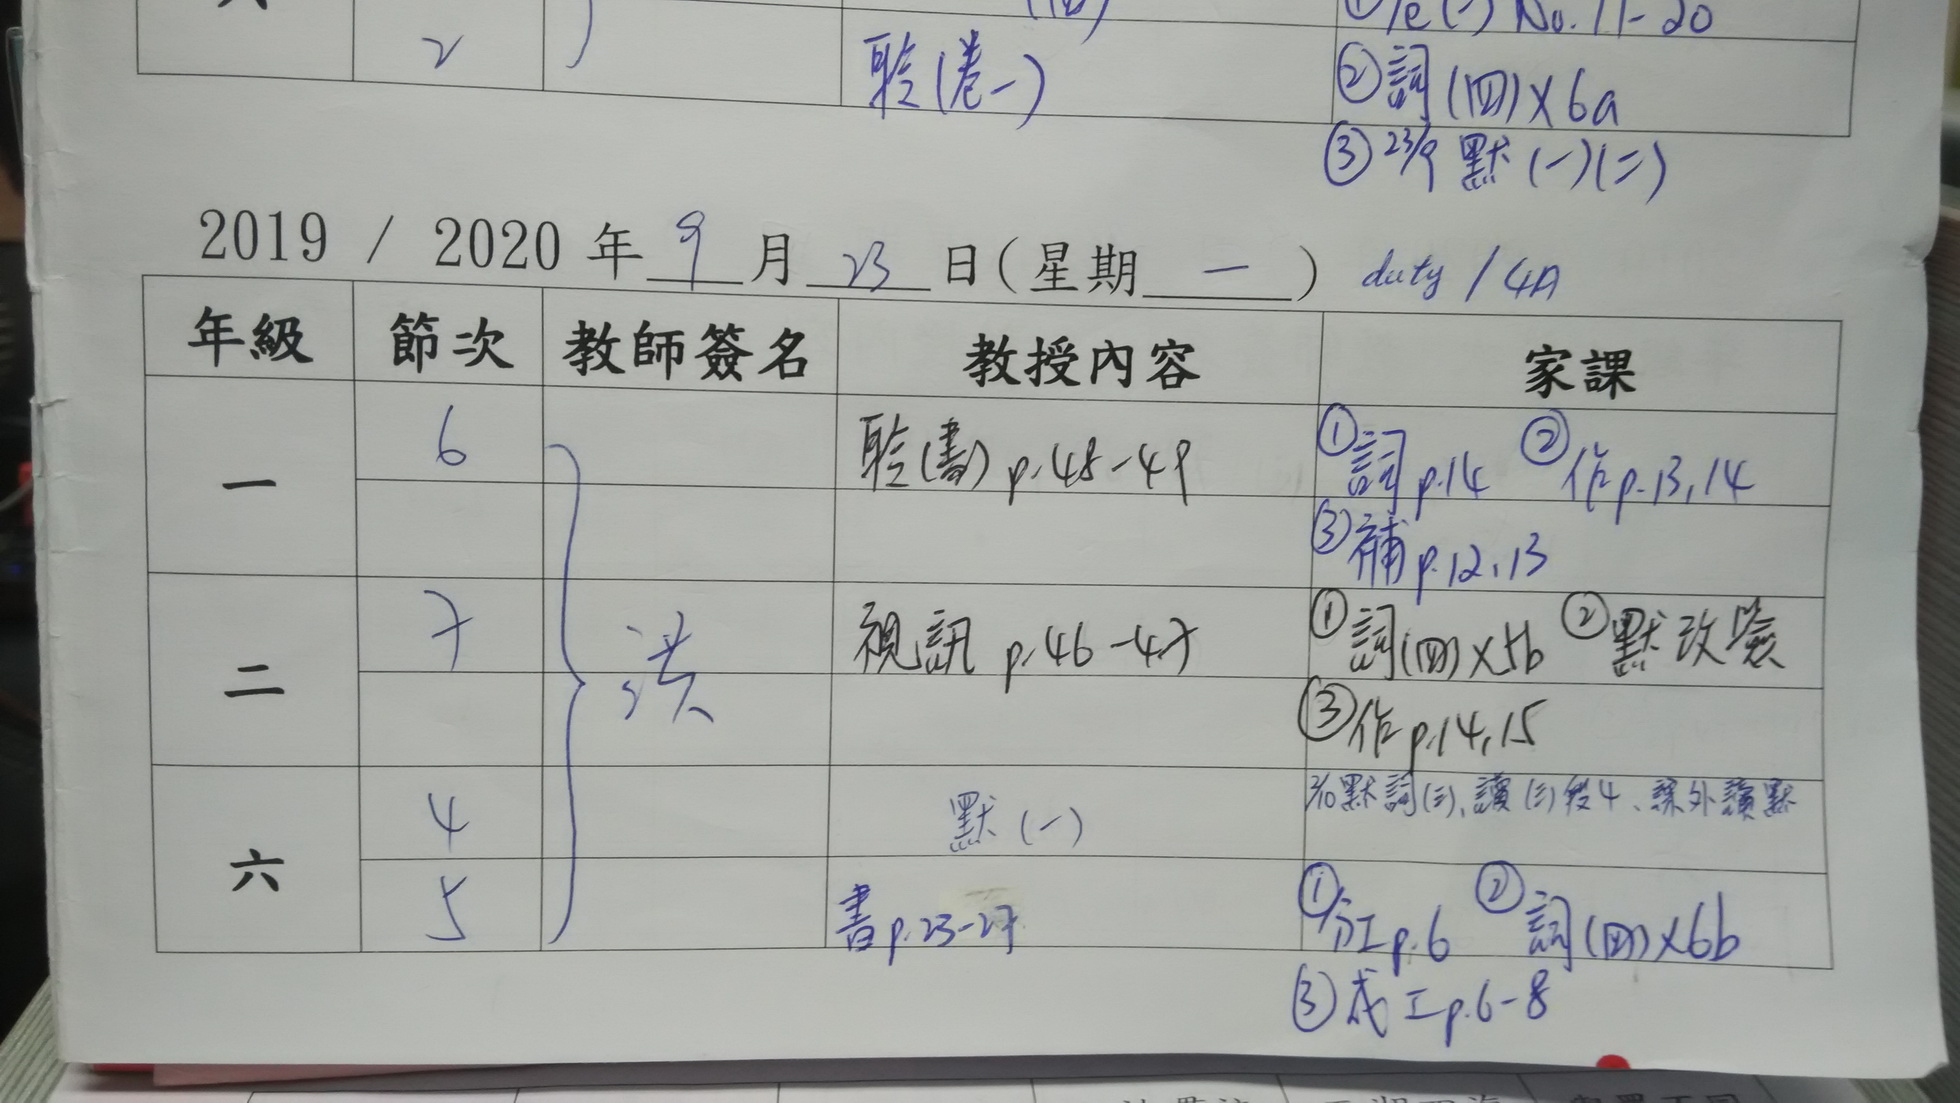 2
聆(卷一)
No. 11-20
②詞(四)×6a
③23/9 默(一)(二)
2019 / 2020 年 9 月 23 日(星期 一 ) duty / 4A
年級 節次 教師簽名 教授內容 家課
一 6 聆(書) p.48-49 ①詞p.14 ②作p.13,14
③補p.12,13
二 7 視訊 p.46-47 ①詞(四)×5b ②默改
③作p.14,15
六 4 默(一) 2/10默詞(三)、讀(三)段4、課外讀默
5 書p.23-27 ①p.6 ②詞(四)×6b
③成工p.6-8